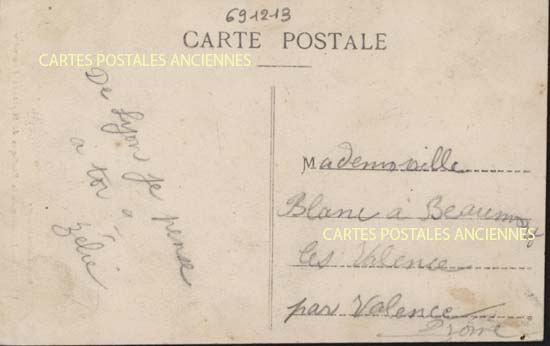 691213
CARTE POSTALE
CARTES POSTALES ANCIENNES
De Lyon je pense
à toi
Zélie
Mademoiselle
Blanc à Beaumont
CARTES POSTALES ANCIENNES
les Valence
par Valence
Drôme